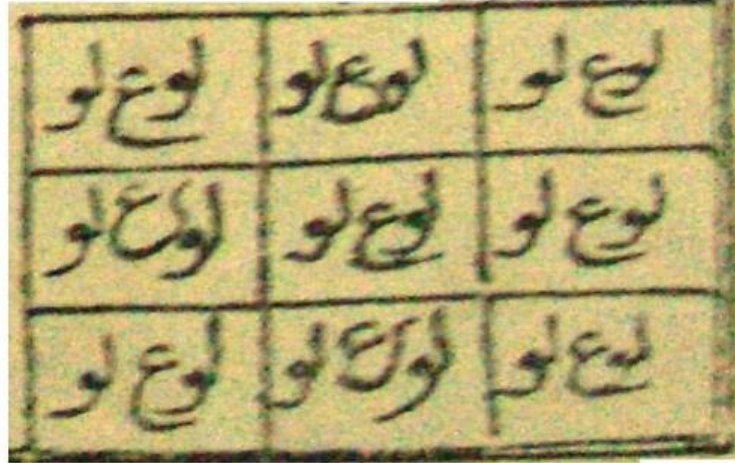 لوع لو لوع لو لوع لو
لوع لو لوع لو لوع لو
لوع لو لوع لو لوع لو